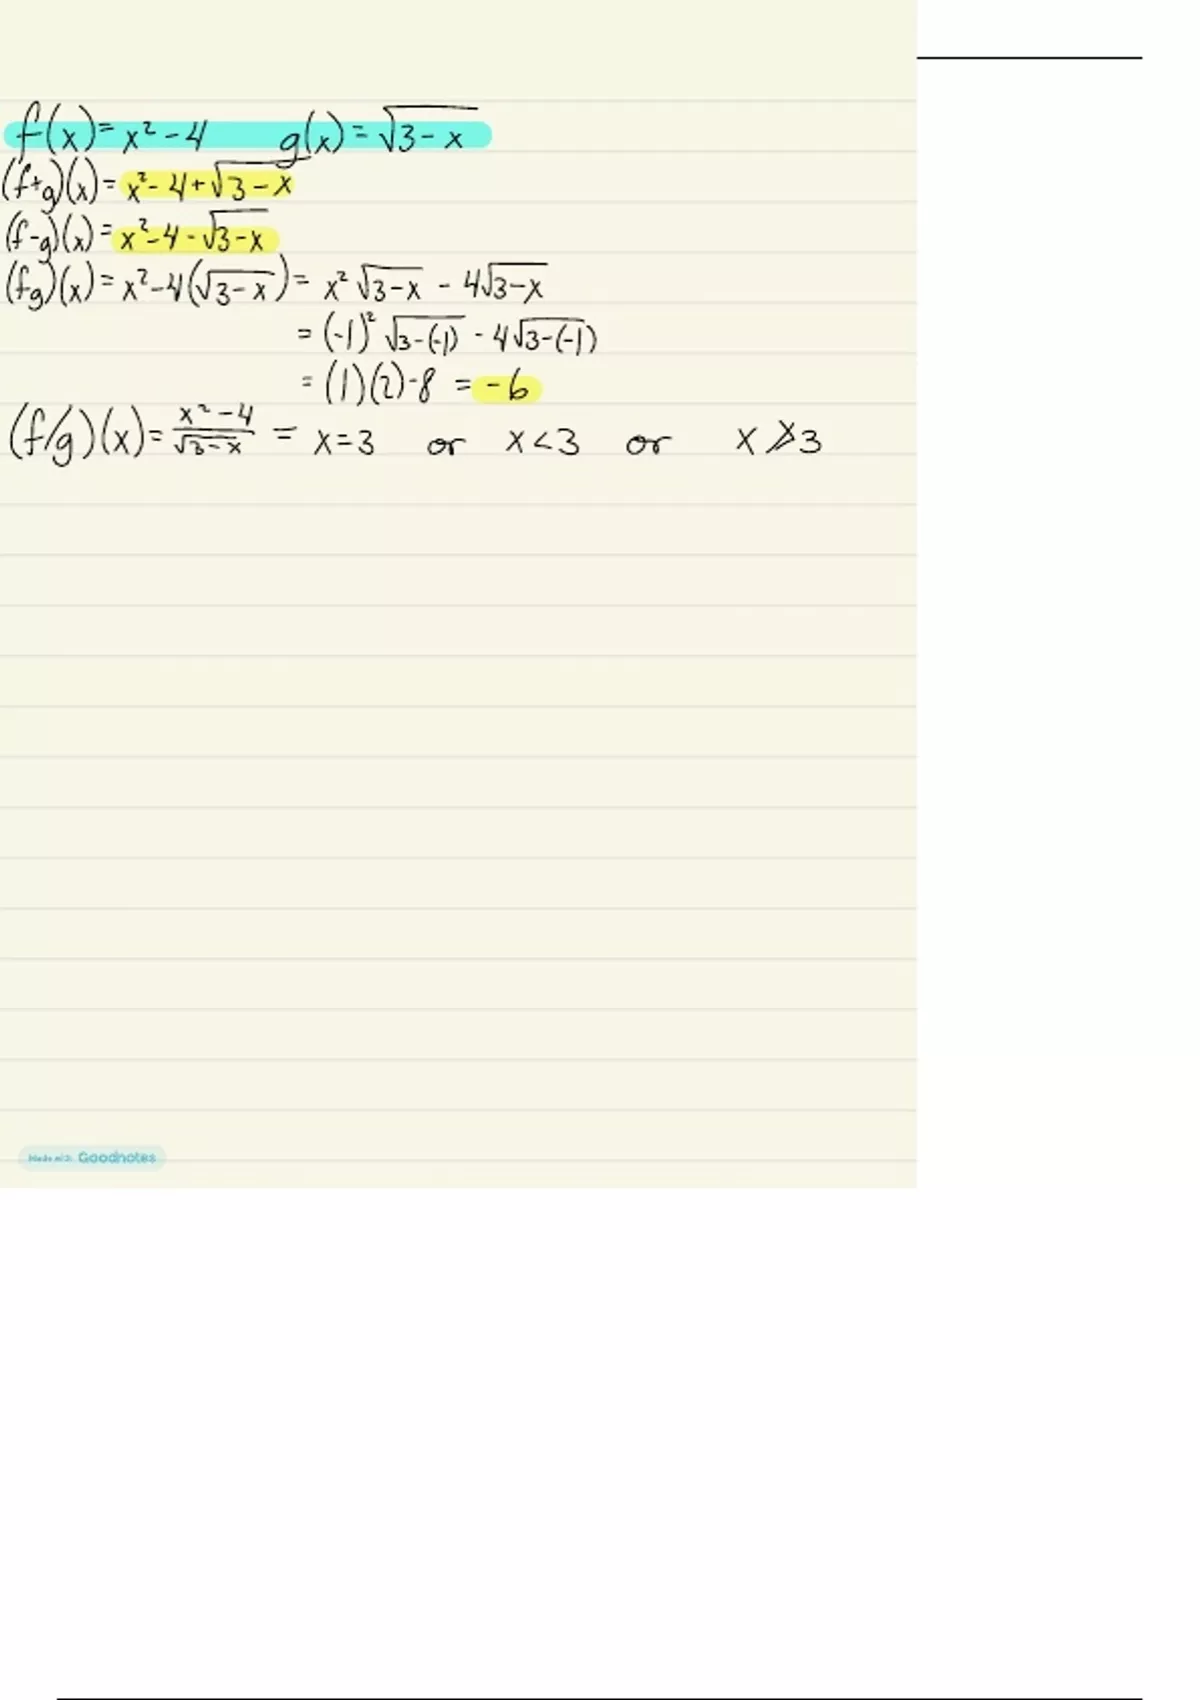 f(x) = x² - 4 g(x) = √3 - x
(f+g)(x) = x² - 4 + √3 - x
(f-g)(x) = x² - 4 - √3 - x
(fg)(x) = x² - 4(√3 - x) = x² √3 - x - 4√3 - x
= (-1)² √3 - (-1) - 4√3 - (-1)
= (1)(2) - 8 = -6
(f/g)(x) = x² - 4 / √3 - x = x = 3 or x < 3 or x ≯ 3
Made with Goodnotes